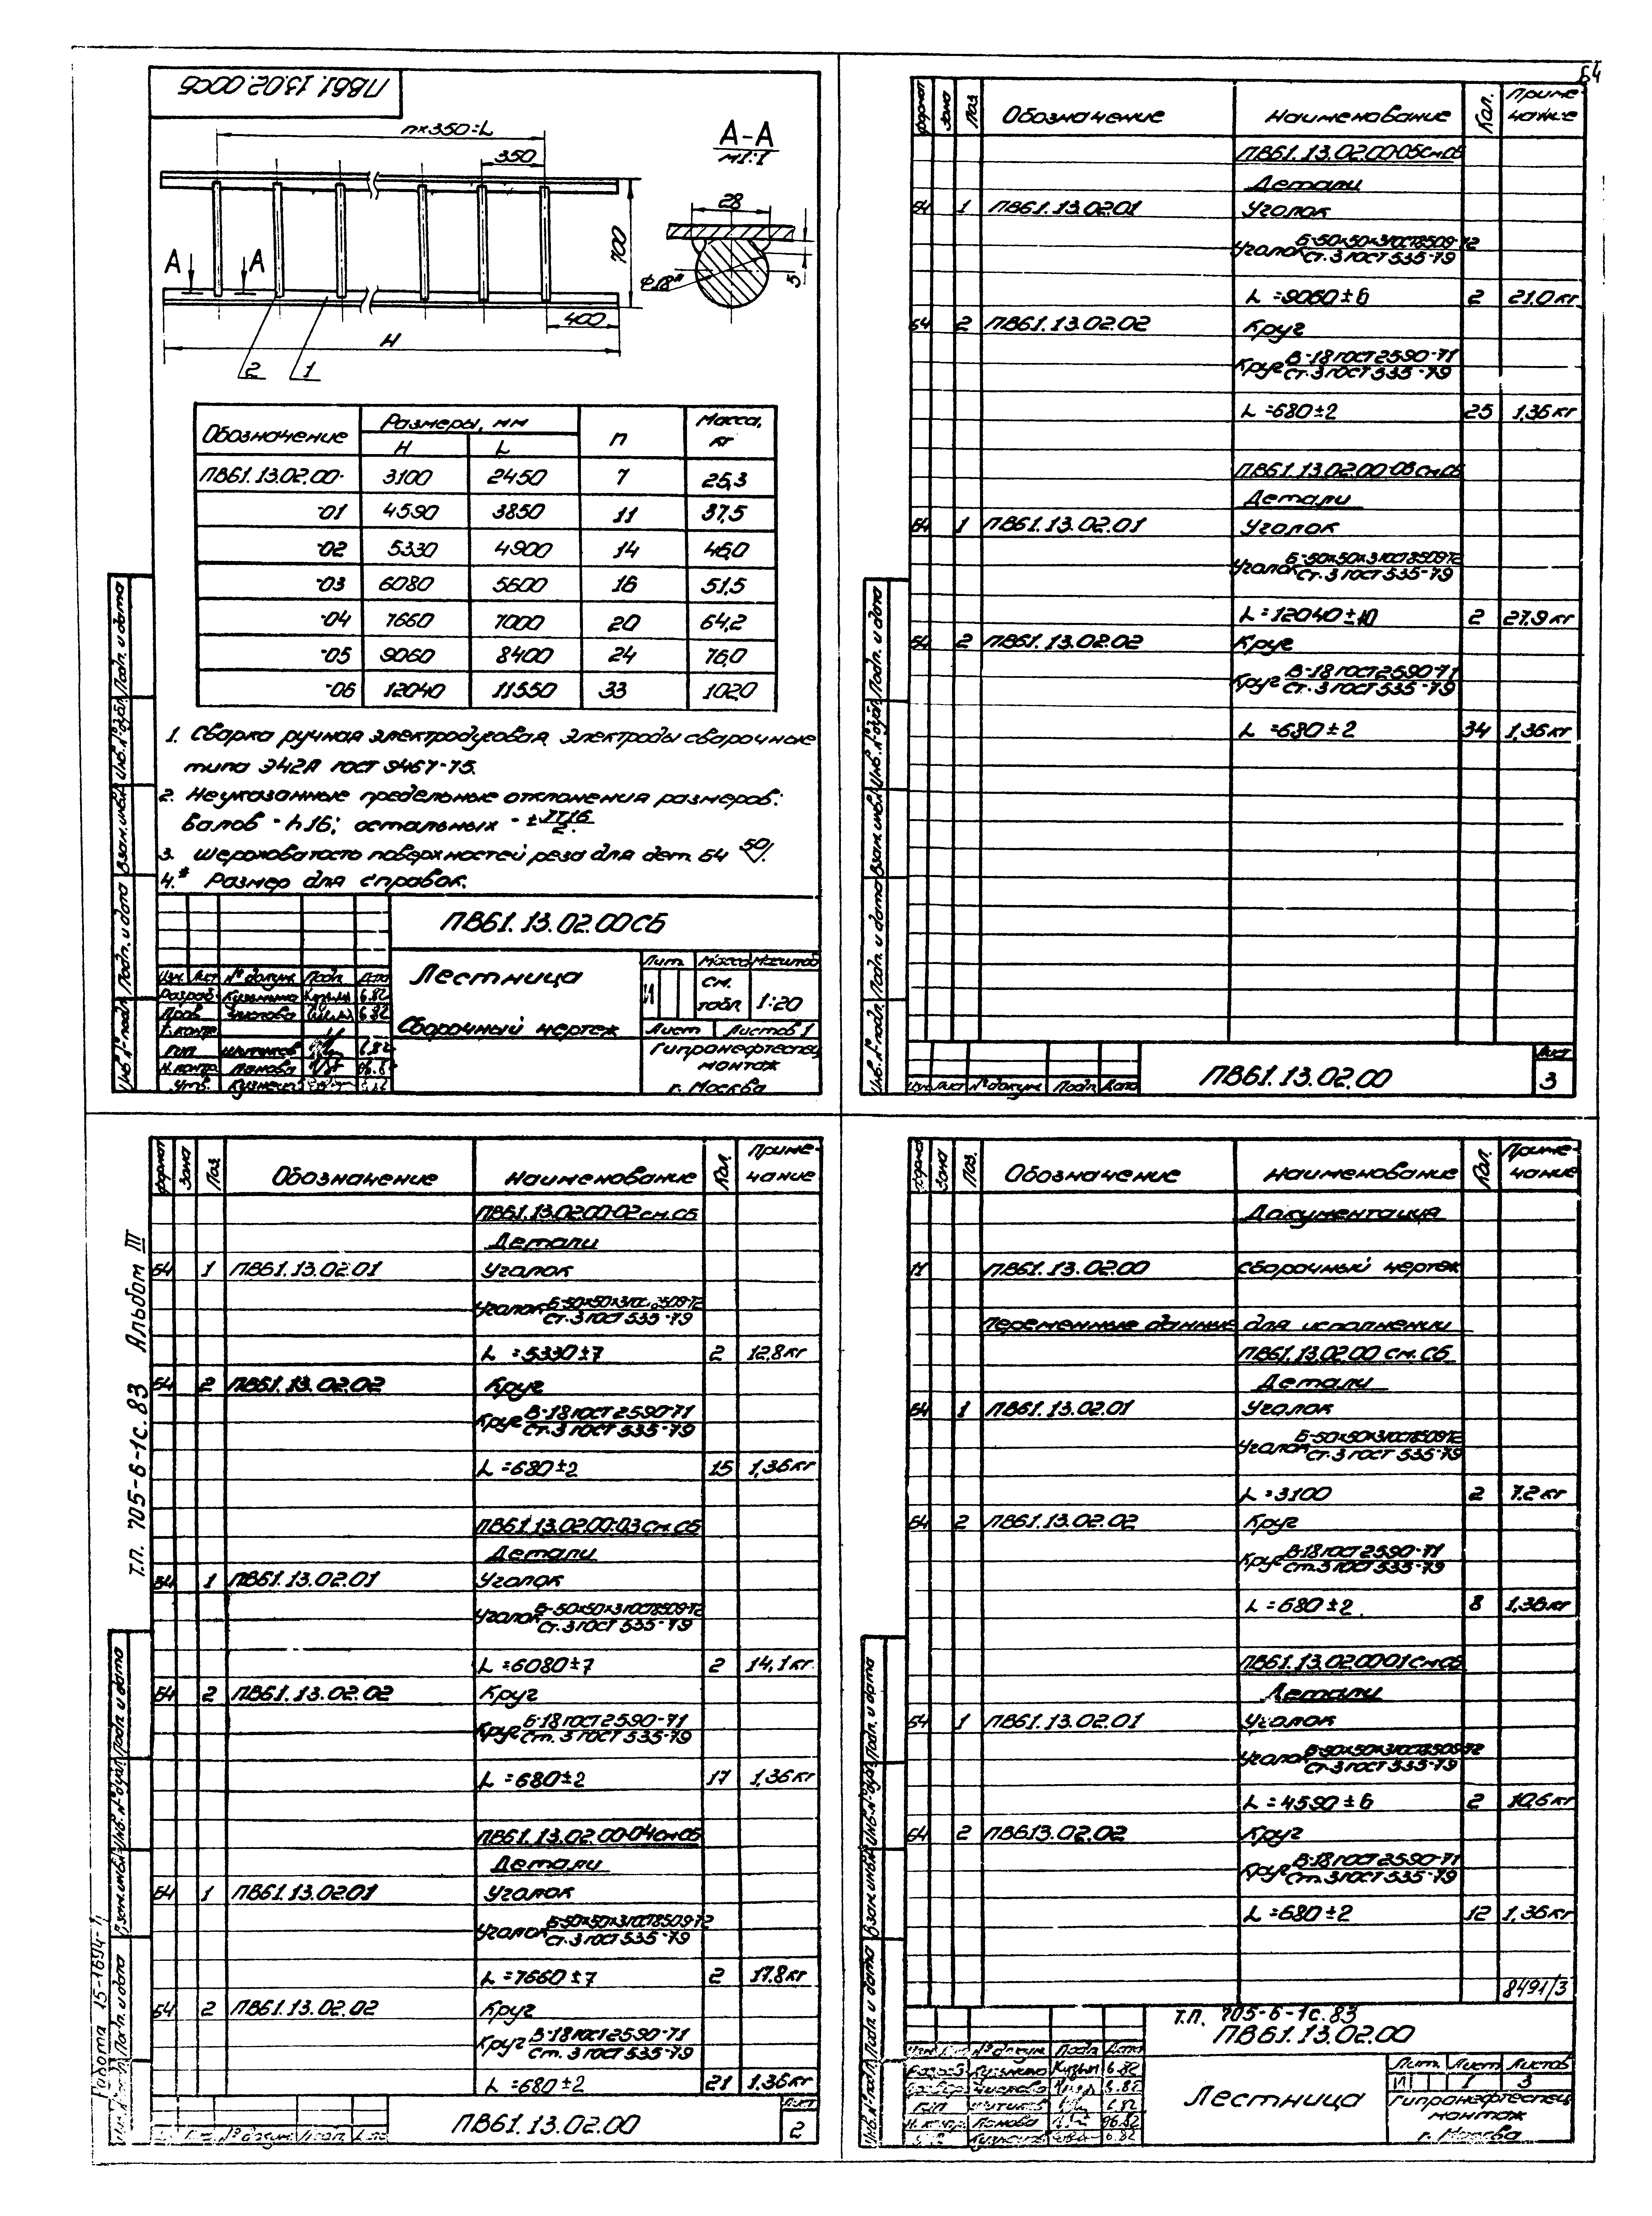 64
ПВ61.13.02.00СБ
n×350=L
350
700
400
H
А
А
2
1
А-А
М1:1
28
5
ϕ18*
Обозначение Размеры, мм n Масса, кг
H L
ПВ61.13.02.00- 3100 2450 7 25,3
-01 4590 3850 11 37,5
-02 5330 4900 14 46,0
-03 6080 5600 16 51,5
-04 7660 7000 20 64,2
-05 9060 8400 24 76,0
-06 12040 11550 33 102,0
1. Сварка ручная электродуговая, электроды сварочные
типа Э42А ГОСТ 9467-75.
2. Неуказанные предельные отклонения размеров:
валов - h16; остальных - ± IT16/2.
3. Шероховатость поверхностей реза для дет. Б4 50/
4.* Размер для справок.
ПВ61.13.02.00СБ
Лестница
Сборочный чертеж
Лит. Масса Масштаб
И см. табл. 1:20
Лист Листов 1
Гипронефтеспец
монтаж
г. Москва
Изм. Лист № докум. Подп. Дата
Разраб. Кузьмина 6.82
Пров. 6.82
Т.контр.
ГИП 6.82
Н.контр. Панова 06.82
Утв.
Инв. № подл. Подп. и дата Взам. инв. № Инв. № дубл. Подп. и дата
Формат Зона Поз. Обозначение Наименование Кол. Примечание
ПВ61.13.02.00-05 см.СБ
Детали
Б4 1 ПВ61.13.02.01 Уголок
Уголок Б-50×50×3 ГОСТ 8509-72
Ст.3 ГОСТ 535-79
L=9060±6 2 21,0 кг
Б4 2 ПВ61.13.02.02 Круг
Круг В-18 ГОСТ 2590-71
Ст.3 ГОСТ 535-79
L=680±2 25 1,36 кг
ПВ61.13.02.00-06 см.СБ
Детали
Б4 1 ПВ61.13.02.01 Уголок
Уголок Б-50×50×3 ГОСТ 8509-72
Ст.3 ГОСТ 535-79
L=12040±10 2 27,9 кг
Б4 2 ПВ61.13.02.02 Круг
Круг В-18 ГОСТ 2590-71
Ст.3 ГОСТ 535-79
L=680±2 34 1,36 кг
Инв. № подл. Подп. и дата Взам. инв. № Инв. № дубл. Подп. и дата
Изм. Лист № докум. Подп. Дата
ПВ61.13.02.00
Лист
3
Т.П. 705-6-1с.83 Альбом III
Работа 15-1694-
Формат Зона Поз. Обозначение Наименование Кол. Примечание
ПВ61.13.02.00-02 см.СБ
Детали
Б4 1 ПВ61.13.02.01 Уголок
Уголок Б-50×50×3 ГОСТ 8509-72
Ст.3 ГОСТ 535-79
L=5330±7 2 12,8 кг
Б4 2 ПВ61.13.02.02 Круг
Круг В-18 ГОСТ 2590-71
Ст.3 ГОСТ 535-79
L=680±2 15 1,36 кг
ПВ61.13.02.00-03 см.СБ
Детали
Б4 1 ПВ61.13.02.01 Уголок
Уголок Б-50×50×3 ГОСТ 8509-72
Ст.3 ГОСТ 535-79
L=6080±7 2 14,1 кг
Б4 2 ПВ61.13.02.02 Круг
Круг В-18 ГОСТ 2590-71
Ст.3 ГОСТ 535-79
L=680±2 17 1,36 кг
ПВ61.13.02.00-04 см.СБ
Детали
Б4 1 ПВ61.13.02.01 Уголок
Уголок Б-50×50×3 ГОСТ 8509-72
Ст.3 ГОСТ 535-79
L=7660±7 2 17,8 кг
Б4 2 ПВ61.13.02.02 Круг
Круг В-18 ГОСТ 2590-71
Ст.3 ГОСТ 535-79
L=680±2 21 1,36 кг
Подп. и дата Взам. инв. № Инв. № дубл. Подп. и дата
ПВ61.13.02.00
Лист
2
Формат Зона Поз. Обозначение Наименование Кол. Примечание
Документация
11 ПВ61.13.02.00 Сборочный чертеж
Переменные данные для исполнений
ПВ61.13.02.00 см.СБ
Детали
Б4 1 ПВ61.13.02.01 Уголок
Уголок Б-50×50×3 ГОСТ 8509-72
Ст.3 ГОСТ 535-79
L=3100 2 7,2 кг
Б4 2 ПВ61.13.02.02 Круг
Круг В-18 ГОСТ 2590-71
Ст.3 ГОСТ 535-79
L=680±2 8 1,36 кг
ПВ61.13.02.00-01 см.СБ
Детали
Б4 1 ПВ61.13.02.01 Уголок
Уголок Б-50×50×3 ГОСТ 8509-72
Ст.3 ГОСТ 535-79
L=4590±6 2 10,6 кг
Б4 2 ПВ613.02.02 Круг
Круг В-18 ГОСТ 2590-71
Ст.3 ГОСТ 535-79
L=680±2 12 1,36 кг
8491/3
Т.П. 705-6-1с.83
ПВ61.13.02.00
Лестница
Лит. Лист Листов
И 1 3
Гипронефтеспец
монтаж
г. Москва
№ докум. Подп. Дата
6.82
6.82
ГИП 6.82
Н.контр. Панова 06.82
6.82
Инв. № подл. Подп. и дата Взам. инв. № Инв. № дубл. Подп. и дата